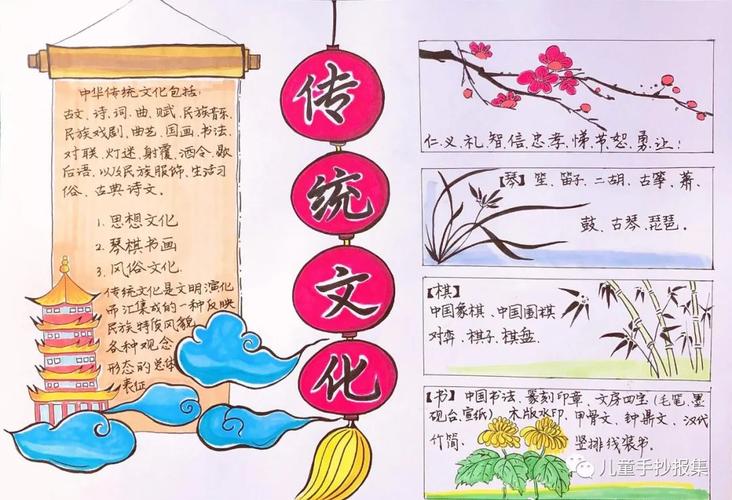 中华传统文化包括:
古文、诗、词、曲、赋、民族音乐、
民族戏剧、曲艺、国画、书法、
对联、灯迷、射覆、酒令、歇
后语、以及民族服饰、生活习
俗、古典诗文、
1. 思想文化
2. 琴棋书画
3. 风俗文化.
传统文化是文明演化
而江集成的一种反映
民族特质风貌
各种观念
形态的总体
表征
传
统
文
化
仁、义、礼、智、信、忠、孝、悌、节、恕、勇、让;
【琴】笙、笛子、二胡、古筝、萧、
鼓、古琴、琵琶。
【棋】
中国象棋、中国围棋
对弈、棋子、棋盘.
【书】中国书法、篆刻印章、文房四宝(毛笔、墨
砚台、宣纸)、木版水印、甲骨文、钟鼎文、汉代
竹简、竖排线装书.
儿童手抄报集